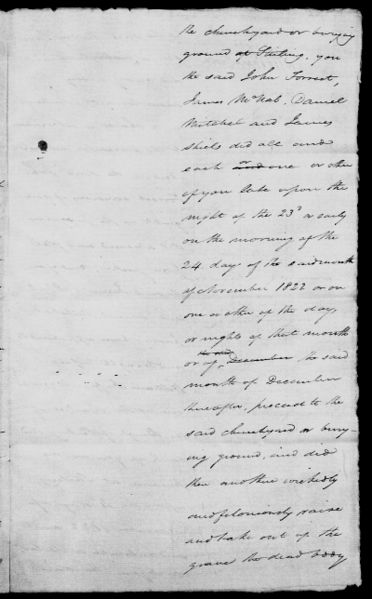 the churchyard or burying
ground of Stirling, you
the said John Forrest,
James McNab, Daniel
Mitchel and James
Shiels did all and
each and or one or other
of you late upon the
night of the 23d or early
on the morning of the
24 day of the said month
of November 1822 or on
one or other of the days
or nights of that month
or of the said December the said
month of December
thereafter, proceed to the
said churchyard or bury-
ing ground, and did
then and there wickedly
and feloniously raise
and take out of the
grave the dead body